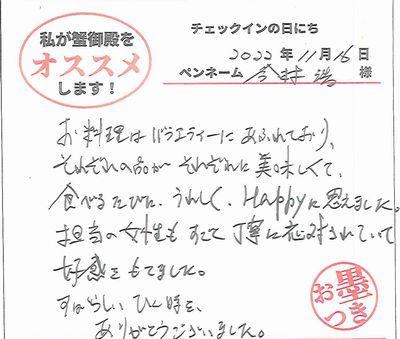 私が蟹御殿を
オススメ
します!
チェックインの日にち
2022年11月16日
ペンネーム 今村 浩 様
お料理はバラエティーにあふれており、
それぞれの品がそれぞれに美味しくて、
食べるたびに、うれしく、Happyに思えました。
担当の女性もすごく丁寧に応対されていて
好感をもてました。
すばらしいひと時を、
ありがとうございました。
お墨つき